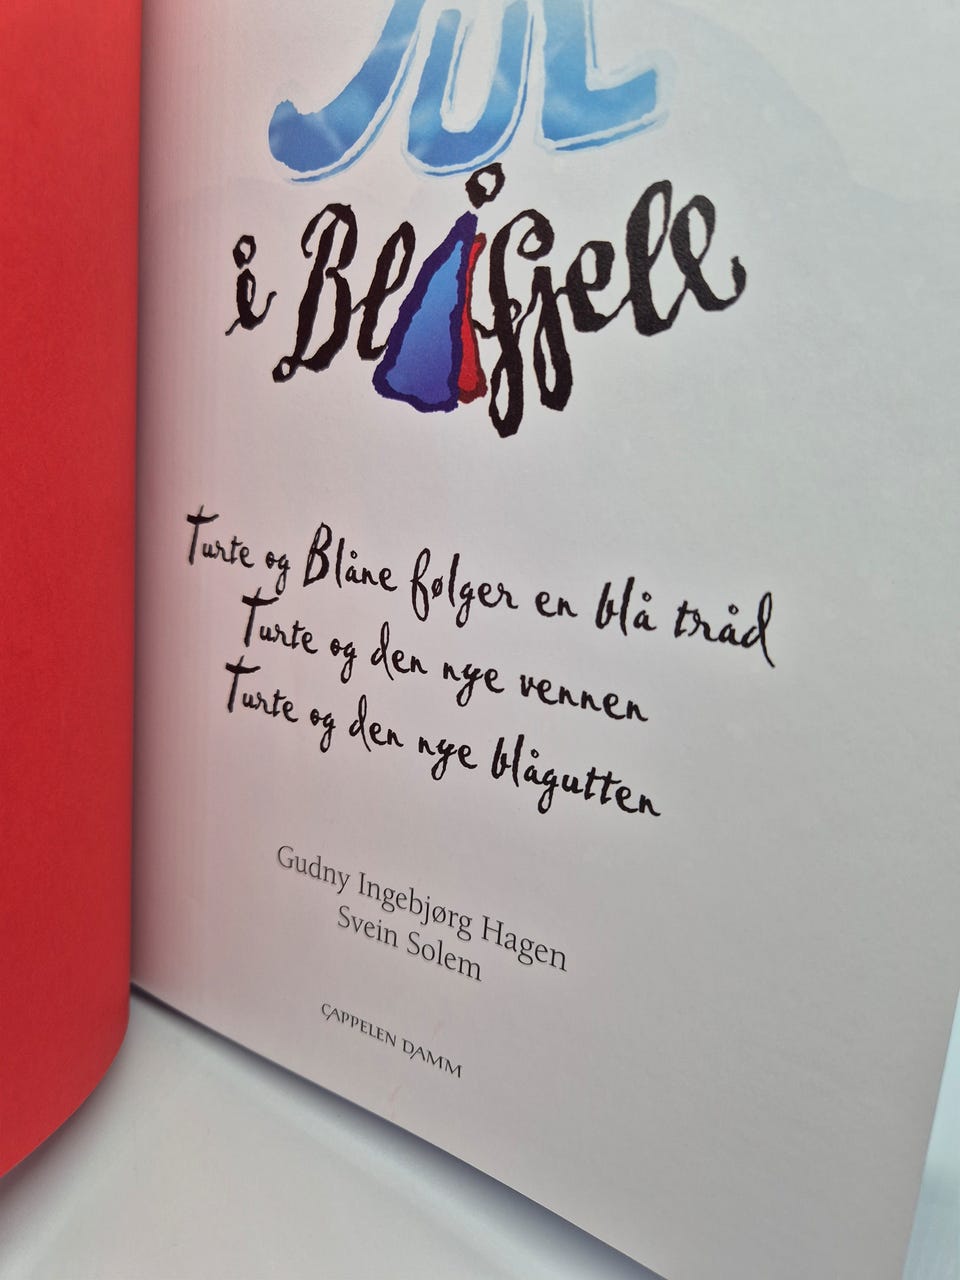 Jul
i Blåfjell
Turte og Blåne følger en blå tråd
Turte og den nye vennen
Turte og den nye blågutten
Gudny Ingebjørg Hagen
Svein Solem
CAPPELEN DAMM